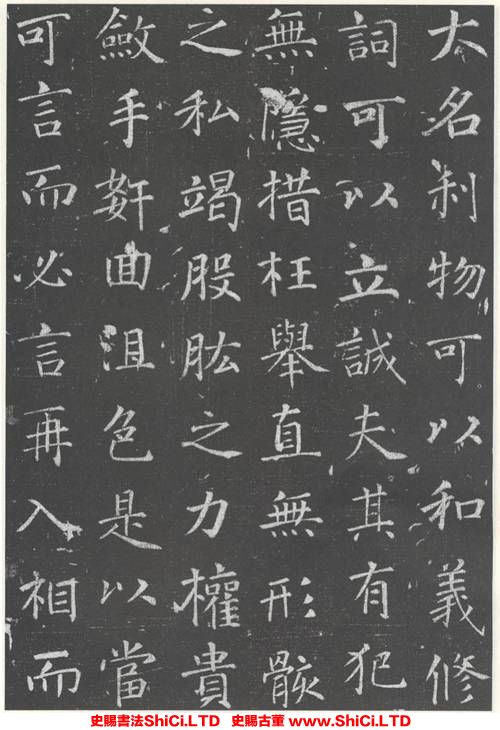 大名利物可以和義修
詞可以立誠夫其有犯
無隱措枉舉直無形骸
之私竭股肱之力權貴
斂手姧囬沮色是以當
可言而必言再入相而
史賜書法ShiCi.LTD 史賜古董 www.ShiCi.LTD